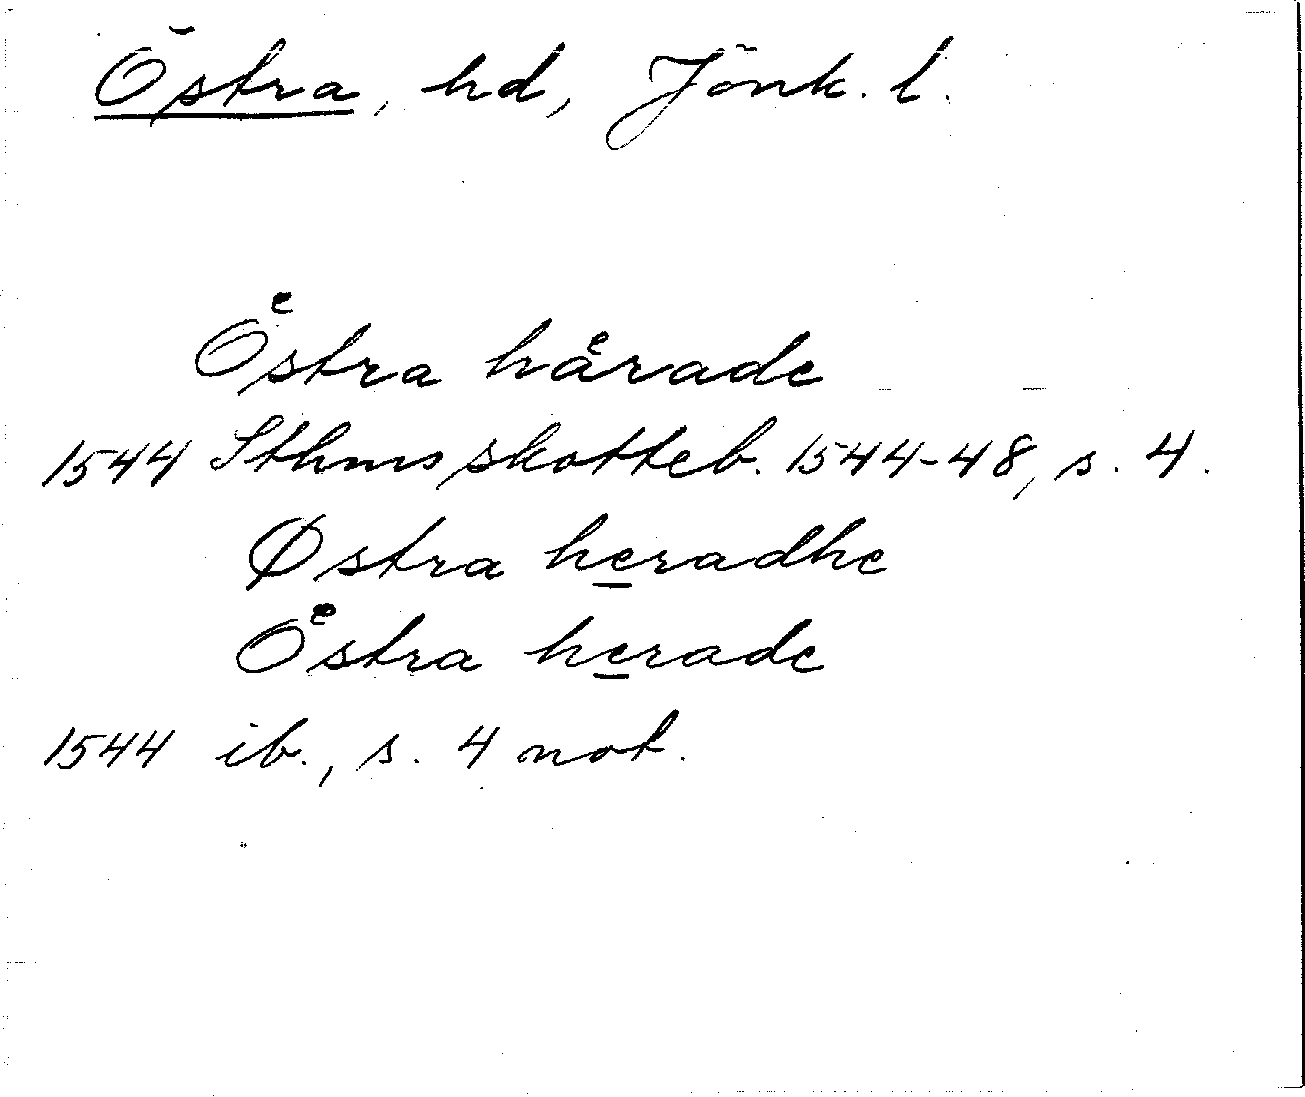 Östra, hd, Jönk. l.
Oͤstra haͤrade
1544 Sthms skotteb. 1544-48, s. 4.
Østra heradhe
Oͤstra herade
1544 ib., s. 4 not.